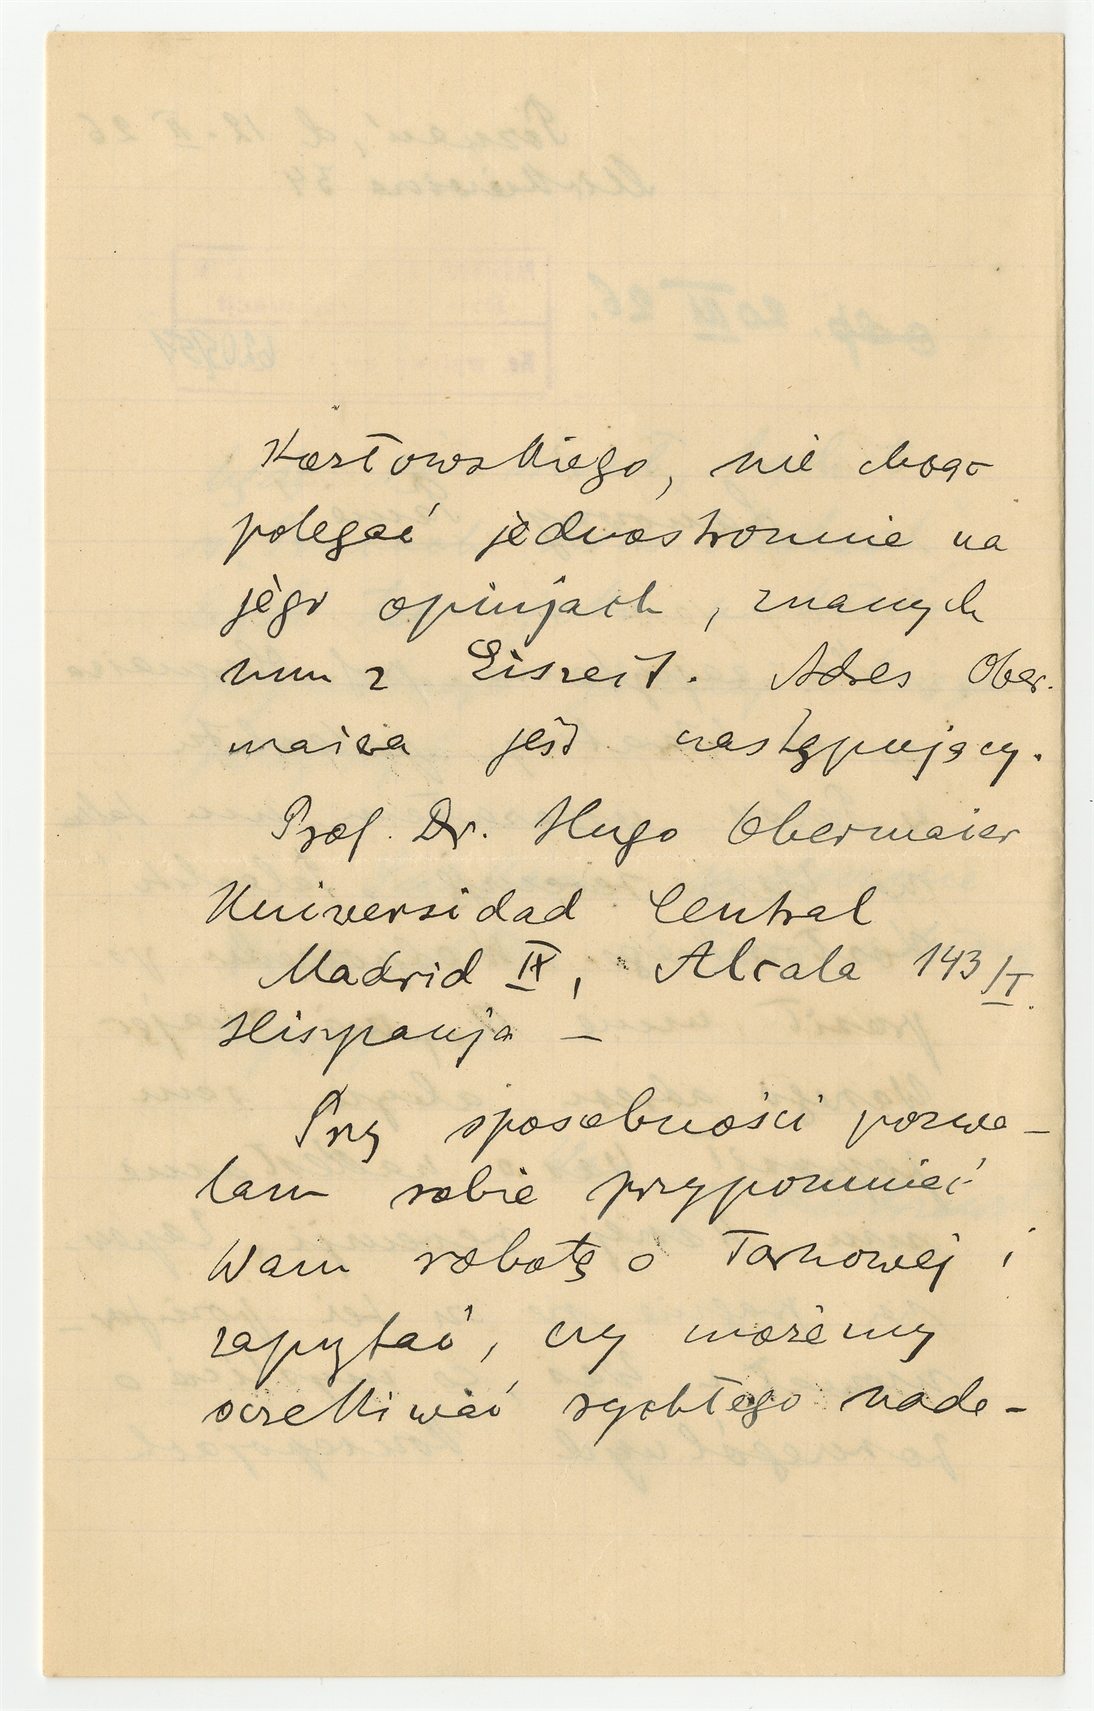 Kozłowskiego, nie chcąc
polegać jednostronnie na
jego opinjach, znanych
mu z Eiszeit. Adres Ober-
maiera jest następujący.
Prof. Dr. Hugo Obermaier
Universidad Central
Madrid IX, Alcala 143/I.
Hiszpanja –
Przy sposobności pozwa-
lam sobie przypomnieć
Wam robotę o Tarnowej i
zapytać, czy możemy
oczekiwać rychłego nade-